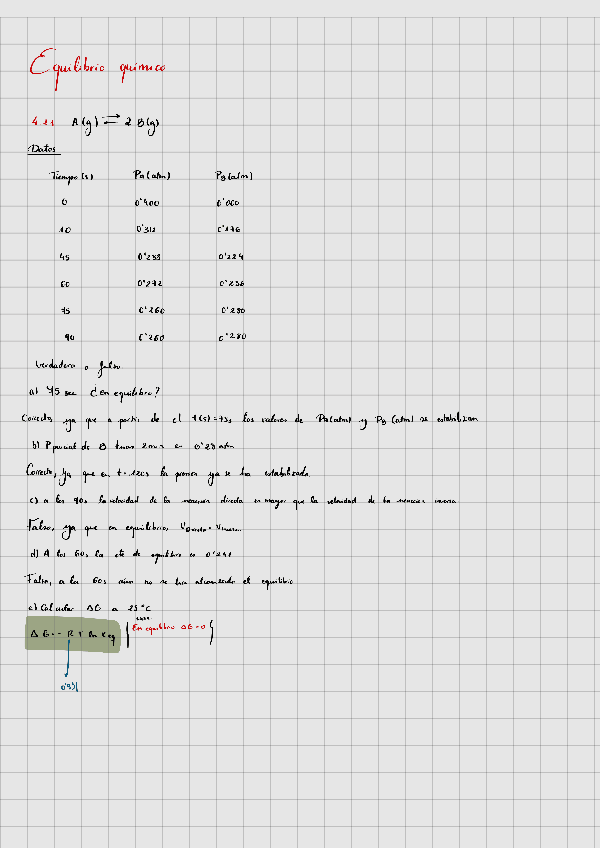 Equilibrio químico
A(g) ⇄ 2 B(g)
Datos
Tiempo (s) PA (atm) PB (atm)
0 0'400 0'000
10 0'312 0'176
45 0'224
60 0'272 0'256
75 0'260 0'280
90 0'260 0'280
Verdadero o falso
a) 75 sec ¿en equilibrio?
Correcto, ya que a partir de el t(s)=75s los valores de PA(atm) y PB (atm) se estabilizan
b) P parcial de B tras 2 min es 0'28 atm
Correcto, ya que en t = 120s la presión ya se ha estabilizado.
c) a los 90s la velocidad de la reacción directa es mayor que la velocidad de la reacción inversa
Falso, ya que en equilibrio, VDirecta = Vinversa
d) A los 60s la cte de equilibrio es 0'241
Falso, a los 60s aún no se ha alcanzado el equilibrio
e) Calcular ΔG a 25 °C
ΔG = - R T ln Keq En equilibrio ΔG = 0